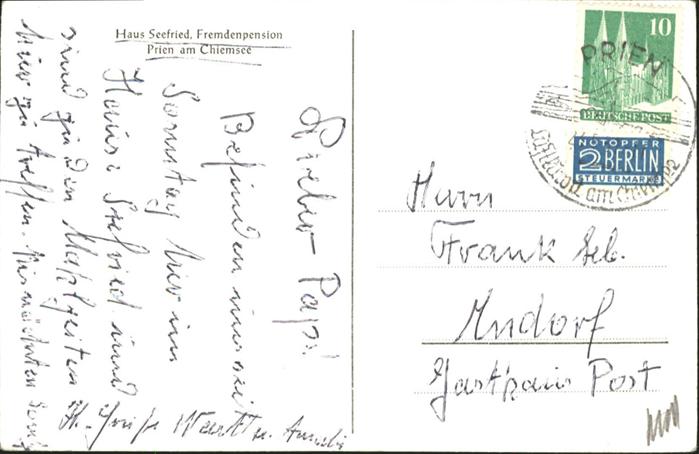 Haus Seefried, Fremdenpension
Prien am Chiemsee
Lieber Papi!
Befinden uns seit
Sonntag hier im
Hause Seefried und
sind zu den Mahlzeiten
hier zu treffen.
Hz. Grüße
10
DEUTSCHE POST
PRIEN
am Chiemsee
NOTOPFER
2 BERLIN
STEUERMARKE
Herrn
Frank Seb.
Endorf
Gasthaus Post